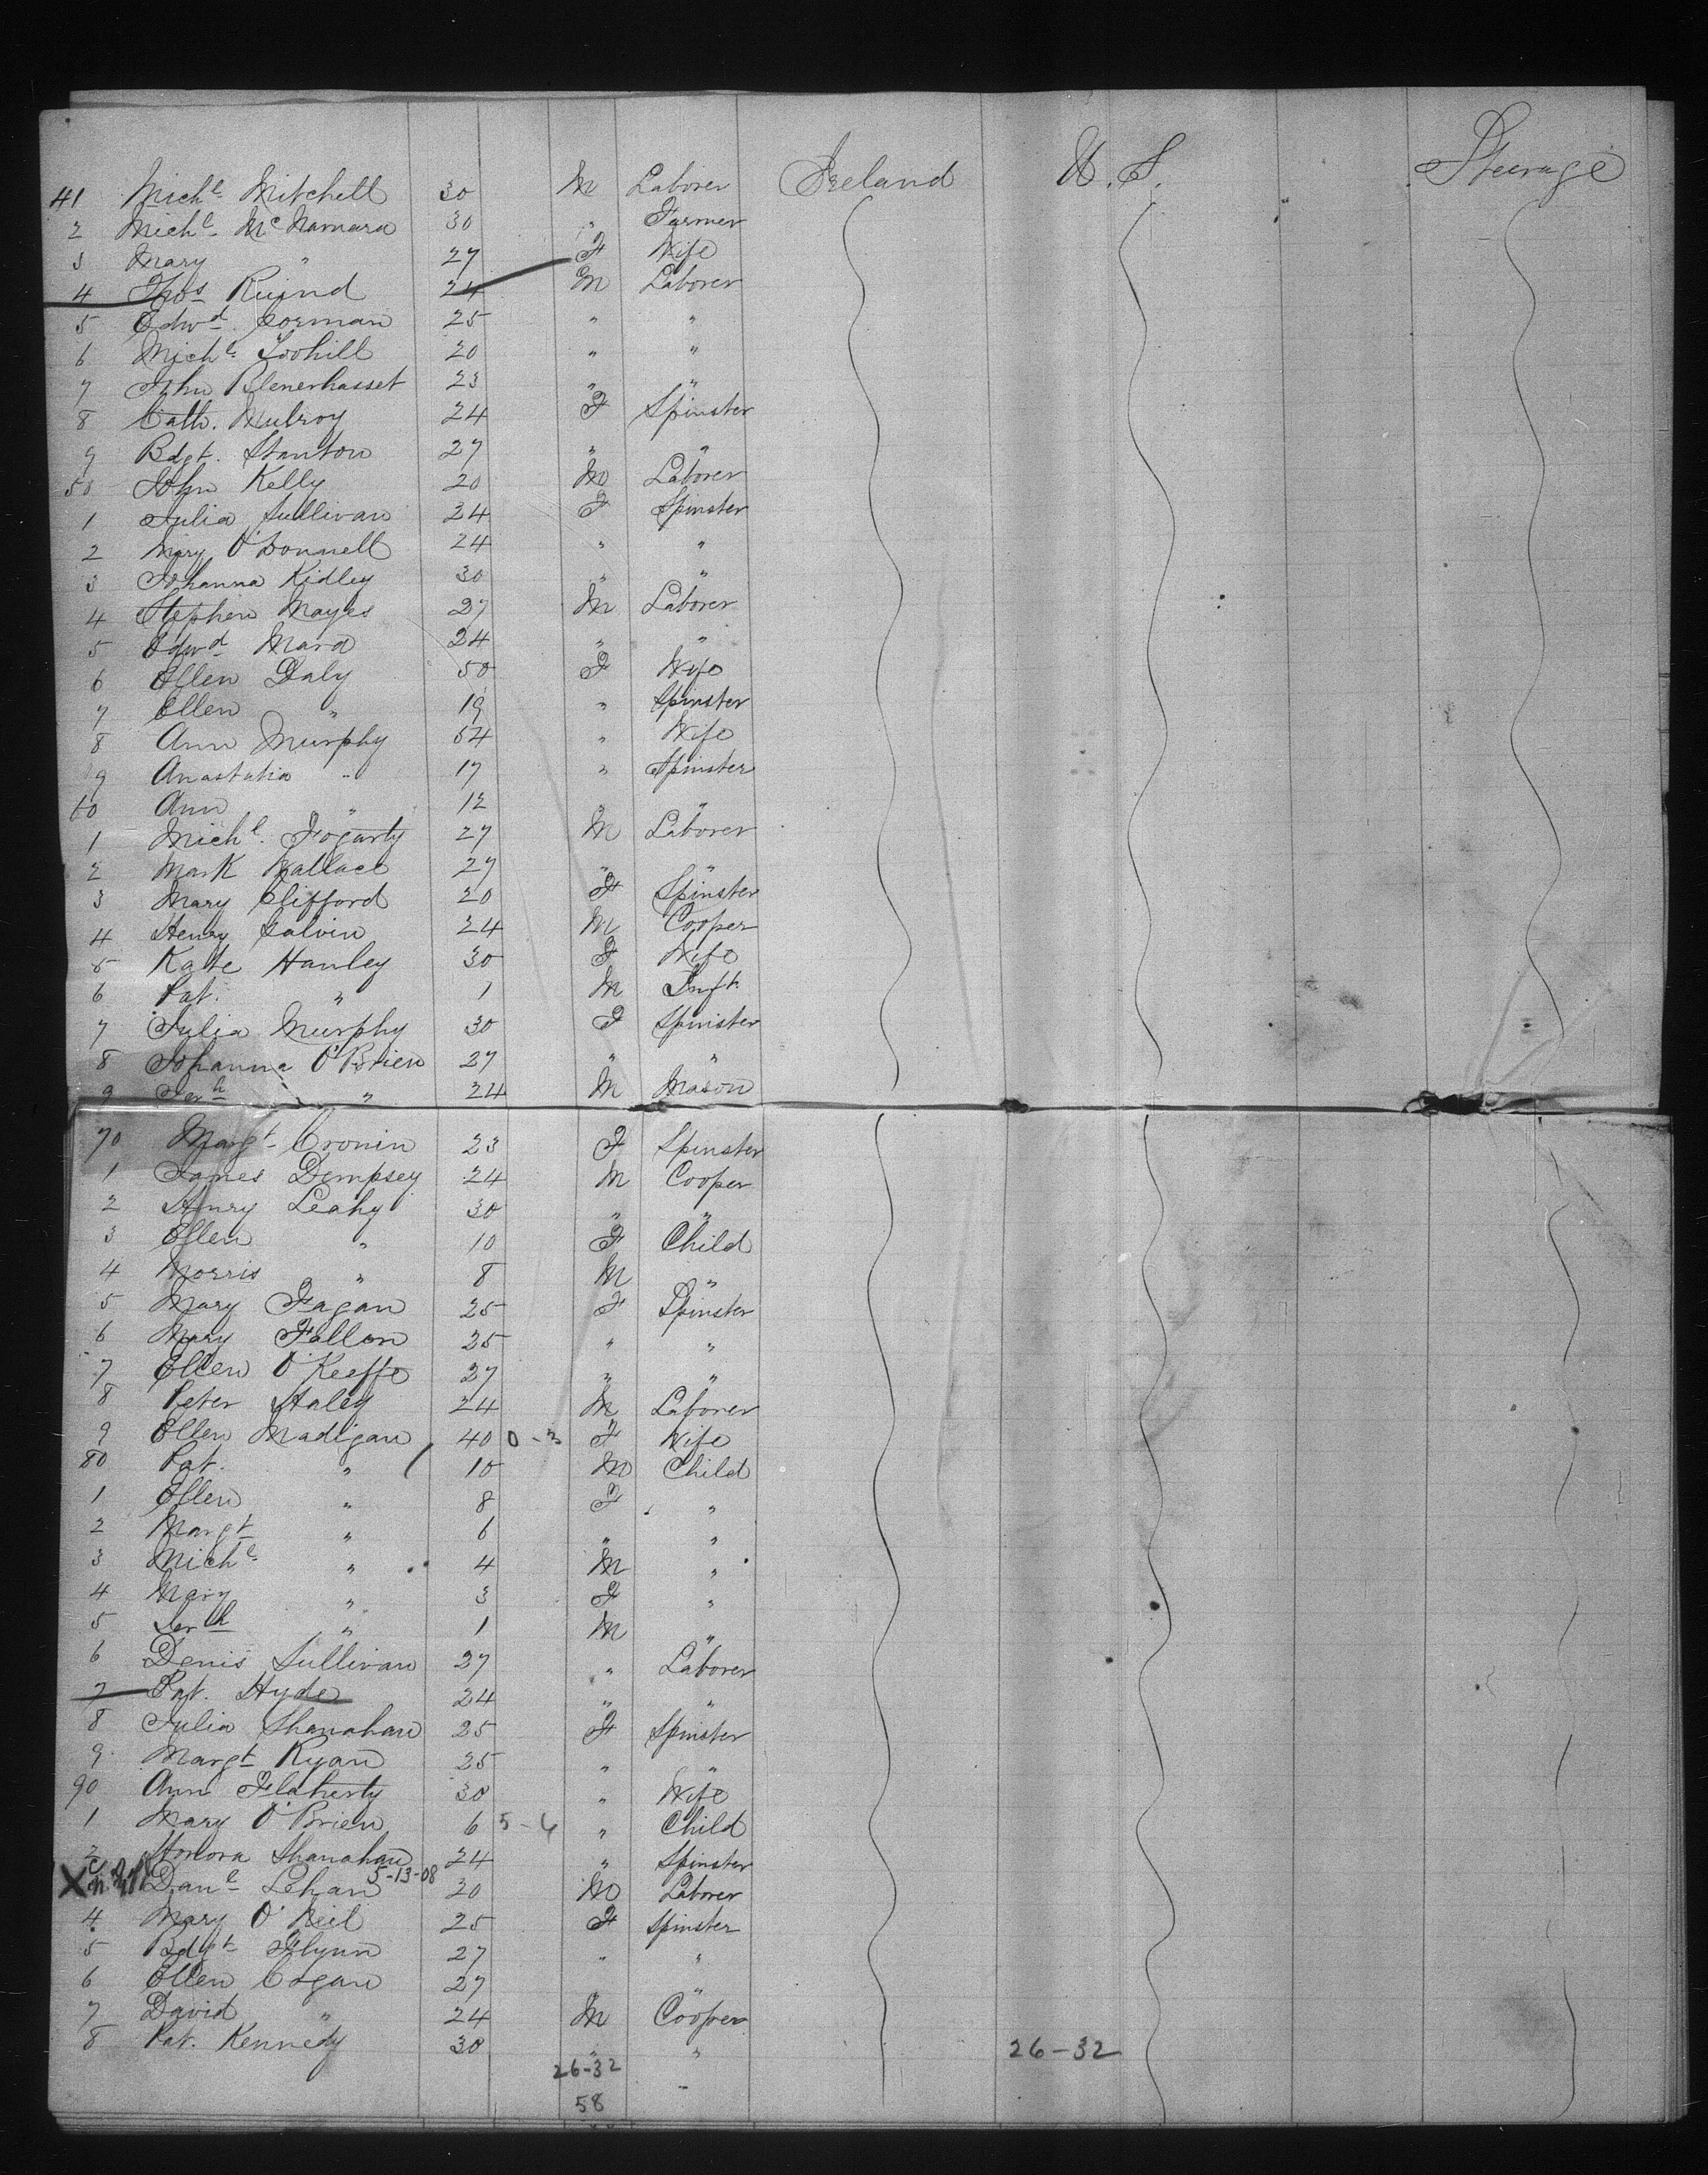 41 Michl Mitchell 30 M Laborer Ireland U.S. Steerage
2 Michl McNamara 30 " Farmer
3 Mary " 27 F Wife
4 Thos 24 M Laborer
5 Edwd Gorman 25 " "
6 Michl Toohill 20 " "
7 John Blenerhasset 23 " "
8 Cath. Mulroy 24 F Spinster
9 Bdgt. Stanton 27 " "
50 John Kelly 20 M Laborer
1 Julia Sullivan 24 F Spinster
2 Mary O'Donnell 24 " "
3 Johanna Kidley 30 " "
4 Stephen Mayes 27 M Laborer
5 Edwd Mara 24 " "
6 Ellen Daly 50 F Wife
7 Ellen " 19 " Spinster
8 Ann Murphy 54 " Wife
9 Anastatia " 17 " Spinster
60 Ann " 12 " "
1 Michl. Fogarty 27 M Laborer
2 Mark Wallace 27 " "
3 Mary Clifford 20 F Spinster
4 Henry Galvin 24 M Cooper
5 Kate Hanley 30 F Wife
6 Pat. " 1 M Inft.
7 Julia Murphy 30 F Spinster
8 Johanna O'Brien 27 " "
9 Jerh " 24 M Mason
70 Margt Cronin 23 F Spinster
1 James Dempsey 24 M Cooper
2 Henry Leahy 30 " "
3 Ellen " 10 F Child
4 Morris " 8 M "
5 Mary Fagan 25 F Spinster
6 Mary Fallon 25 " "
7 Ellen O'Keeffe 27 " "
8 Peter Haley 24 M Laborer
9 Ellen Madigan 40 0-3 F Wife
80 Pat. " 10 M Child
1 Ellen " 8 F "
2 Margt " 6 " "
3 Michl " 4 M "
4 Mary " 3 F "
5 Jerh " 1 M "
6 Denis Sullivan 27 " Laborer
7 Pat. Hyde 24 " "
8 Julia Shanahan 25 F Spinster
9 Margt Ryan 25 " "
90 Ann Flaherty 30 " Wife
1 Mary O'Brien 6 5-6 " Child
2 Honora Shanahan 24 " Spinster
X Danl Lehan 5-13-08 20 M Laborer
4 Mary O'Neil 25 F Spinster
5 Bdgt Flynn 27 " "
6 Ellen Cogan 27 "
7 David " 24 M Cooper
8 Pat. Kennedy 30 " "
26-32 26-32
58